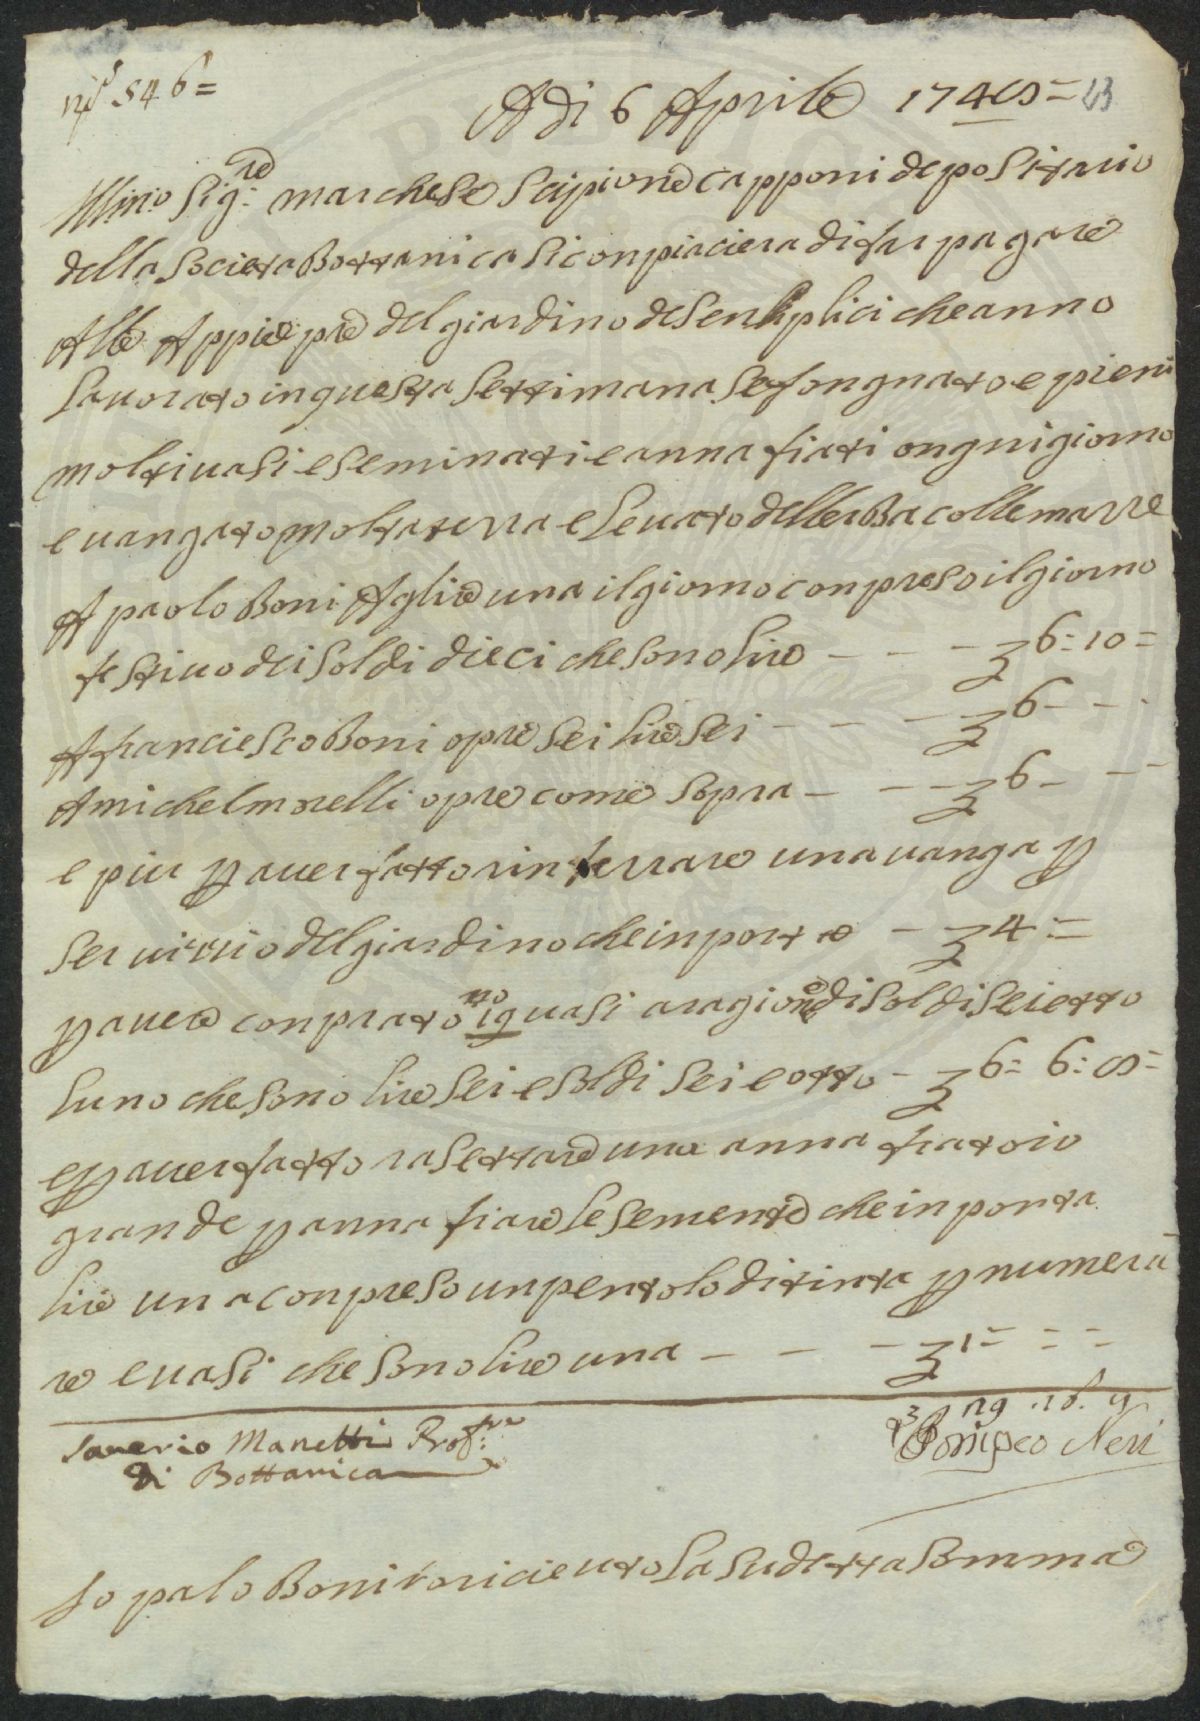 n.º 546=
Adi 6 Aprile 1748= 43
Ill.mo Sig.re marchese Scipione Capponi depositario
della Societa Bottanica si conpiaciera di far pagare
Alle Appie pre del giardino de Senplici che anno
lauorato in questa settimana se fongnato e pieni
molti uasi e seminati e anna fiati ongni giorno
e uangato molta terra e leuato dellerba colle marre
A paolo Boni Aglire una il giorno conpreso il giorno
festiuo dei soldi dieci che sono lire – – – £ 6:10=
A franciesco Boni opre sei lire sei – – – £ 6– – –
A michel morelli opre come sopra – – – £ 6– – –
e piu p auer fatto rinferrare una uanga p
seruitio del giardino che inporta – £ 4:=
p auere conprato no 19 uasi a ragione di soldi sei e otto
luno che sono lire sei e soldi sei e otto – £ 6: 6: 8=
e p auer fatto rasettare uno anna fiatoio
grande p anna fiare le semente che inporta
lire una conpreso un pentolo di tinta p numera
re e uasi che sono lire una – – – £ 1= = =
£ 29 .16. 4
Saverio Manetti Prof.re
di Bottanica
Pompeo Neri
Io palo Boni o riceuto la sudetta somma